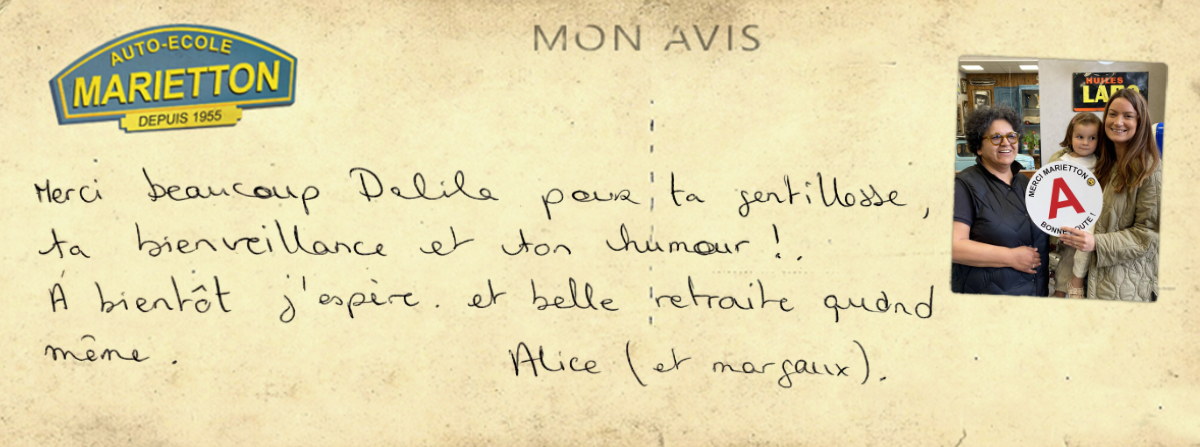 AUTO-ECOLE
MARIETTON
DEPUIS 1955
MON AVIS
HUILES
LABO
MERCI MARIETTON
A
BONNE ROUTE !
Merci beaucoup Dalila pour ta gentillesse,
ta bienveillance et ton humour !.
A bientôt j'espère. et belle retraite quand
même.
Alice (et margaux).